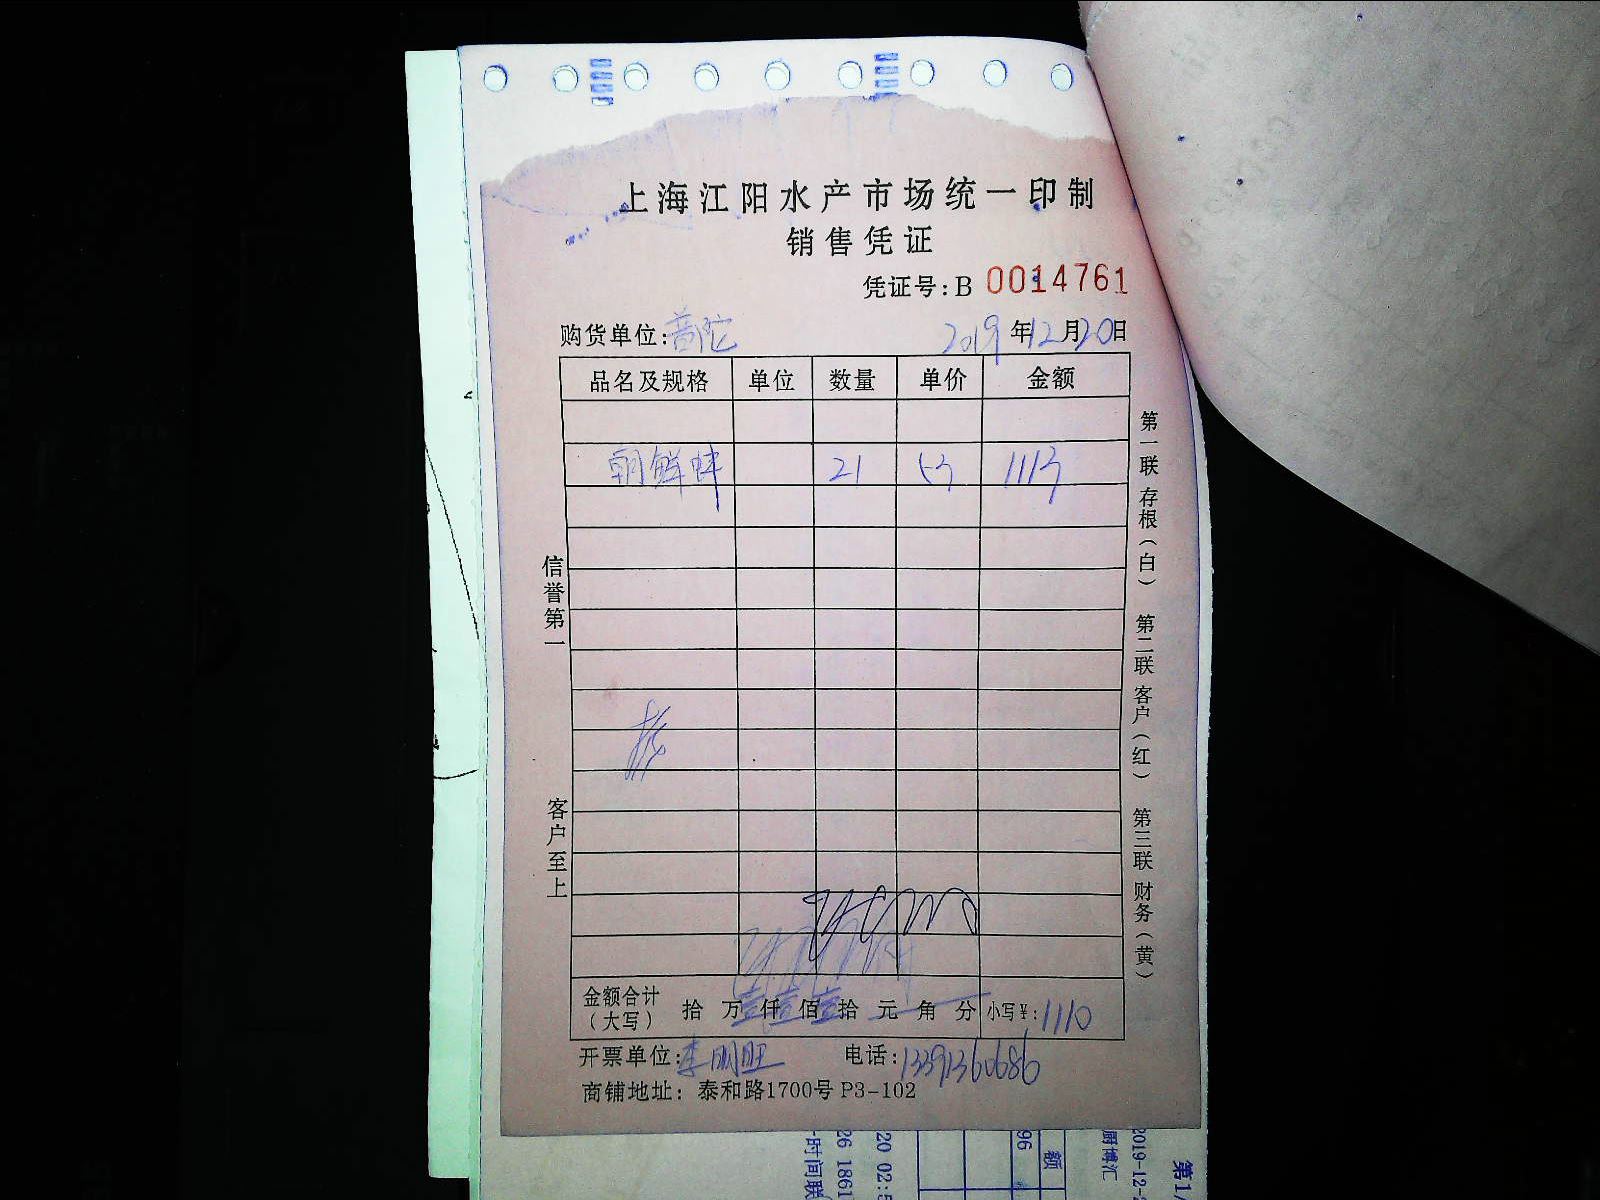 上海江阳水产市场统一印制
销售凭证
凭证号:B 0014761
购货单位:普陀 2019年12月20日
品名及规格 单位 数量 单价 金额
朝鲜蚌 21 53 1113
信誉第一
客户至上
第一联存根(白)
第二联客户(红)
第三联财务(黄)
金额合计(大写) 拾 万壹仟壹佰壹拾 元 角 分 小写¥:1110
开票单位:李明旺 电话:13391360686
商铺地址: 泰和路1700号 P3-102
96
额
厨博汇
2019-12-2
第1/
20 02:5
26 1861
时间联